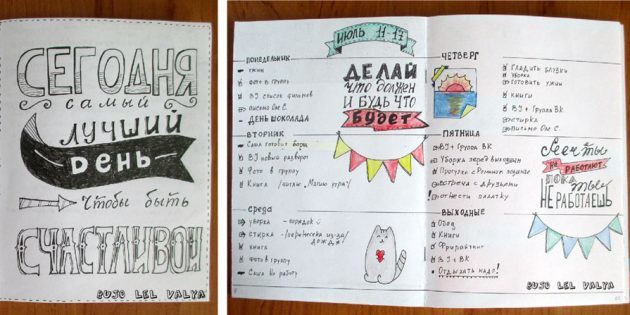 СЕГОДНЯ
самый
лучший
День
Чтобы быть
СЧАСТЛИВОЙ
BUJO LEL VALYA
ИЮЛЬ 11-17
ПОНЕДЕЛЬНИК
Фото в группу
BJ список фильмов
ДЕНЬ ШОКОЛАДА
ДЕЛАЙ
ЧТО ДОЛЖЕН
И БУДЬ ЧТО
БУДЕТ
ВТОРНИК
Саша готовит борщ
BJ новый разворот
Фото в группу
Книга
СРЕДА
уборка - порядок
стирка -
дождя
книга
фото в группу
Саша на работу
ЧЕТВЕРГ
ГЛАДИТЬ БЛУЗКИ
УБОРКА
ГОТОВИТЬ УЖИН
КНИГИ
BJ + Группа ВК
стирка
письмо
ПЯТНИЦА
BJ + Группа ВК
Уборка перед выходными
Прогулка
встреча с друзьями
отнести палатку
Если ты
не РАБОТАЮТ
пока
ты
НЕ РАБОТАЕШЬ
ВЫХОДНЫЕ
Обед
Книги
Фрирайтинг
BJ + ВК
Отдыхать надо!
BUJO LEL VALYA